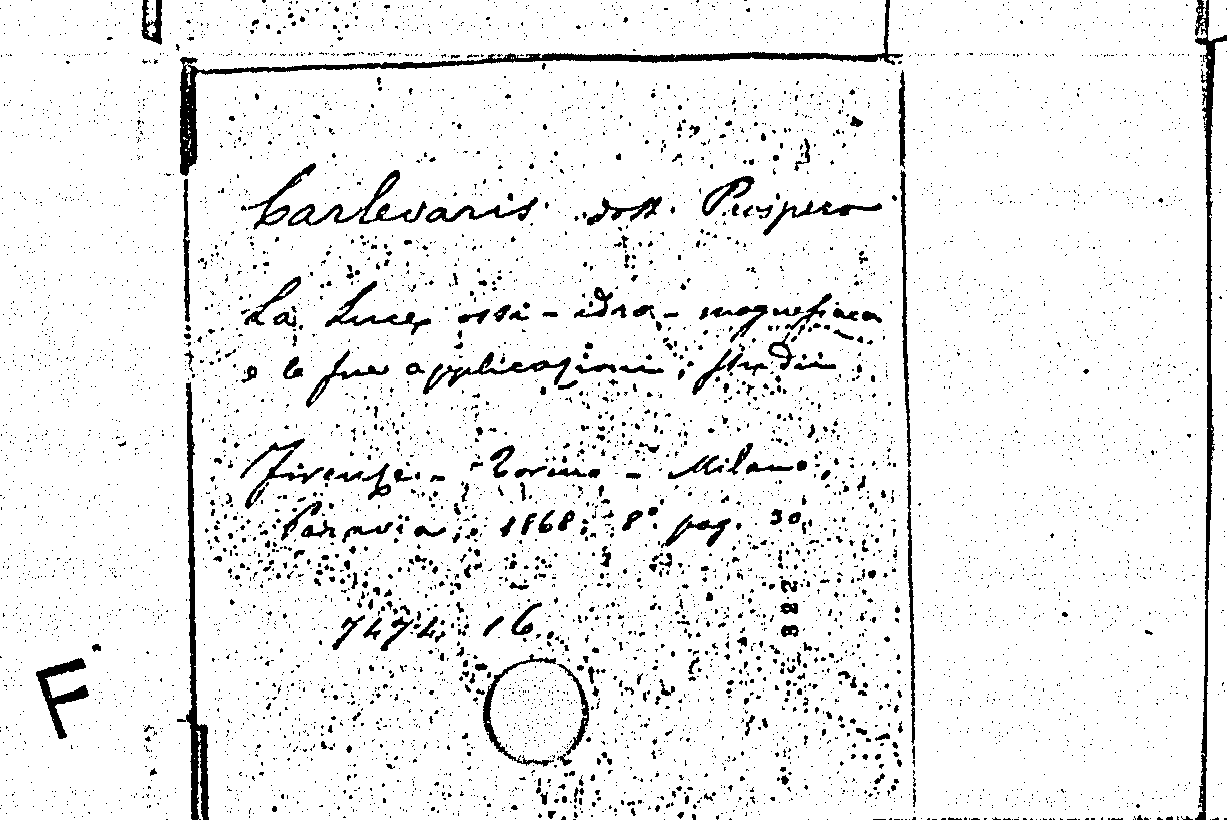 Carlevaris dott. Prospero
La Luce ossi-idro-magnesiaca
e le sue applicazioni, studii
Firenze - Torino - Milano,
Paravia, 1868. 8° pag. 30.
7474. 16.
322
F